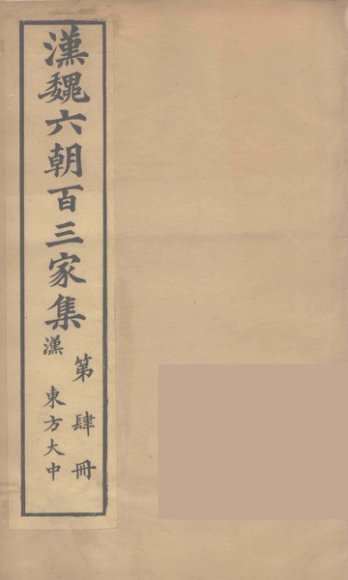 漢魏六朝百三家集
漢 東方大中
第肆冊